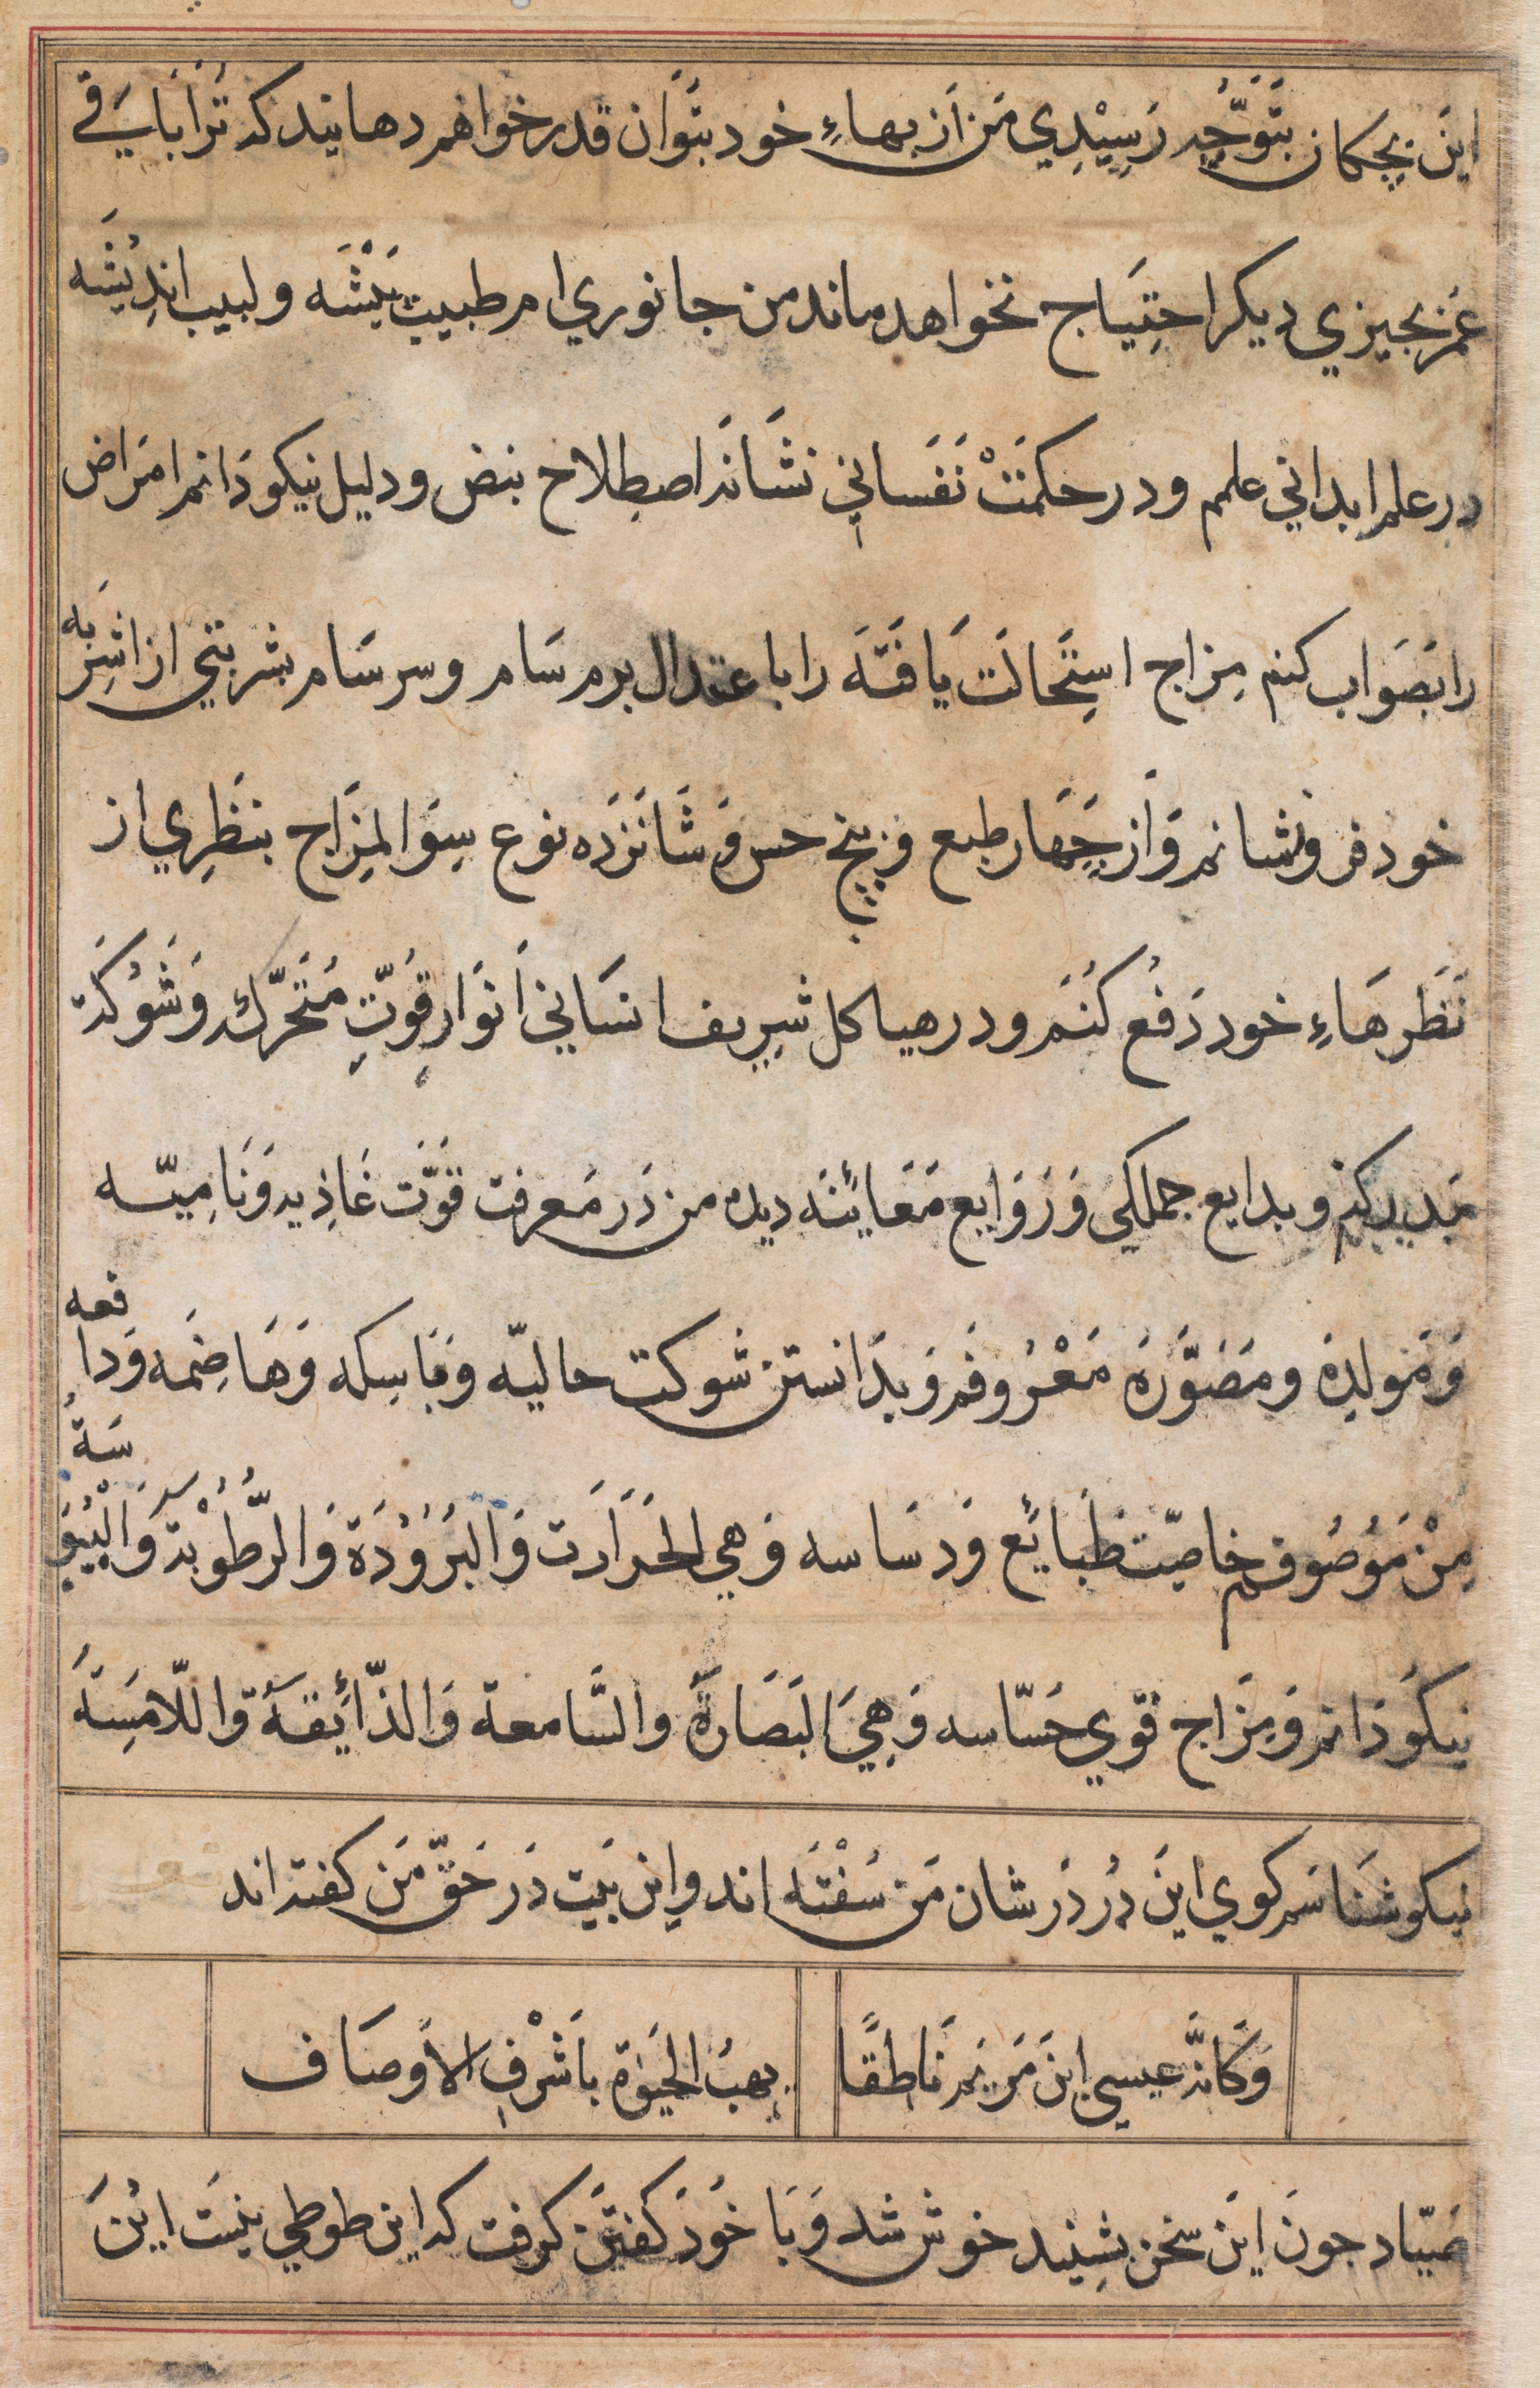 این بچکان بتوجّه رسیدی من از بهاء خود بتوان قدر خواهم دهانید که ترا باقی
عمر بجیزی دیکر احتیاج نخواهد ماند من جانوری ام طبیب بیشه ولبیب اندیشه
در علم ابدانی علمم ودر حکمت نفسانی نشانه اصطلاح نبض ودلیل نیکو دانم امراض
را بصواب کنم مزاج استحالت یافته را باعتدال برم سام وسرسام بشربتی از اشربه
خود فرو نشانم واز چهار طبع وپنج حس وشانزده نوع سوالمزاج بنظری از
نظرهاء خود دفع کنم ودر هیاکل شریف انسانی انوار قوّت متحرّک وشوکة
مدیر کنم وبدایع جملکی وزوایع معائنه دیده من در معرفت قوّت غاذیه ونامیّه
ومولده ومصوّره معروفم وبدانستن شوکت حالیّه وماسکه وهاضمه ودافعه
من موصوفم خاصیّت طبائع ودساسه وهی الحرارت والبرودة والرّطوبة والیبوسة
نیکو دانم ومزاج قوی حسّاسه وهی البصارة والسّامعة والذّائیقة واللّامسة
نیکو شناسم کوی این در در شان من سفته اند واین بیت در حقّ من کفته اند
وكانّه عیسی ابن مریم ناطقًا
یهب الحیوة باشرف الاوصاف
صیّاد جون این سخن بشنید خوش شد وبا خود کفتن کرفت که این طوطی نیست این